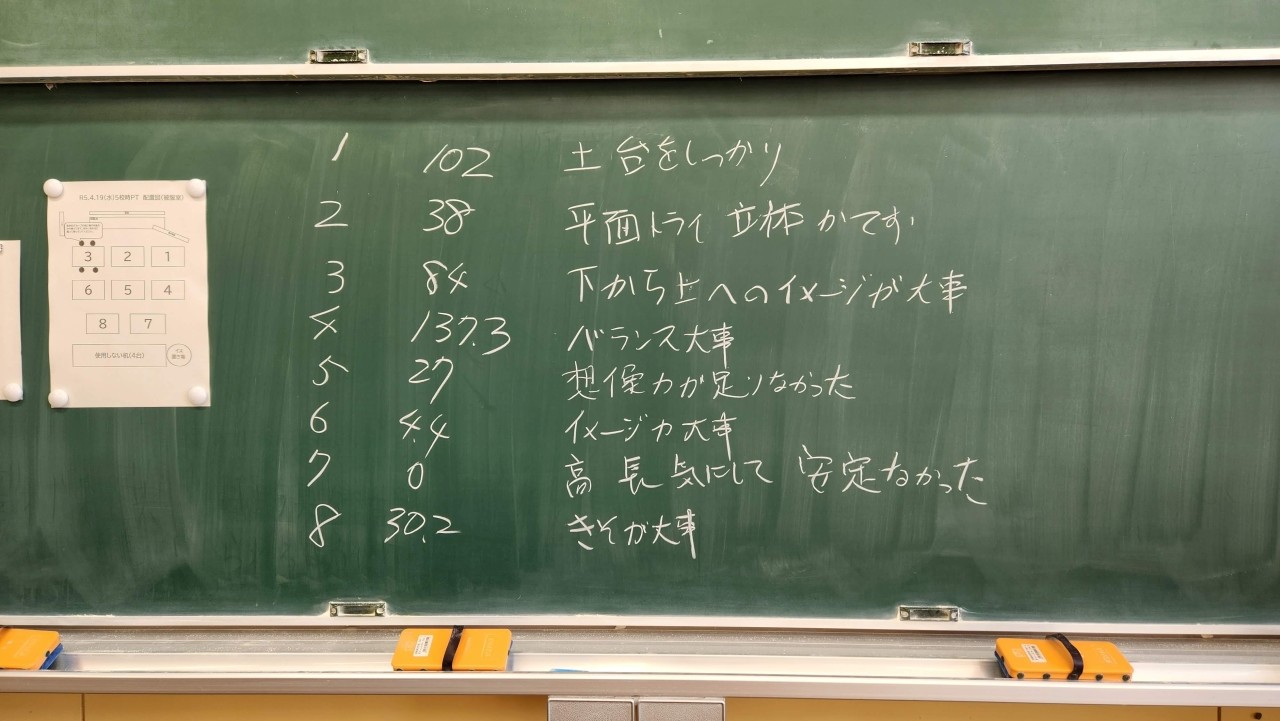 1 102 土台をしっかり
2 38 平面トライ 立体かてず
3 84 下から上へのイメージが大事
4 137.3 バランス大事
5 27 想像力が足りなかった
6 4.4 イメージ力大事
7 0 高 長 気にして 安定なかった
8 30.2 きそが大事
R5.4.19(水)5校時PT 配置図(被服室)
3 2 1
6 5 4
8 7
使用しない机(4台)